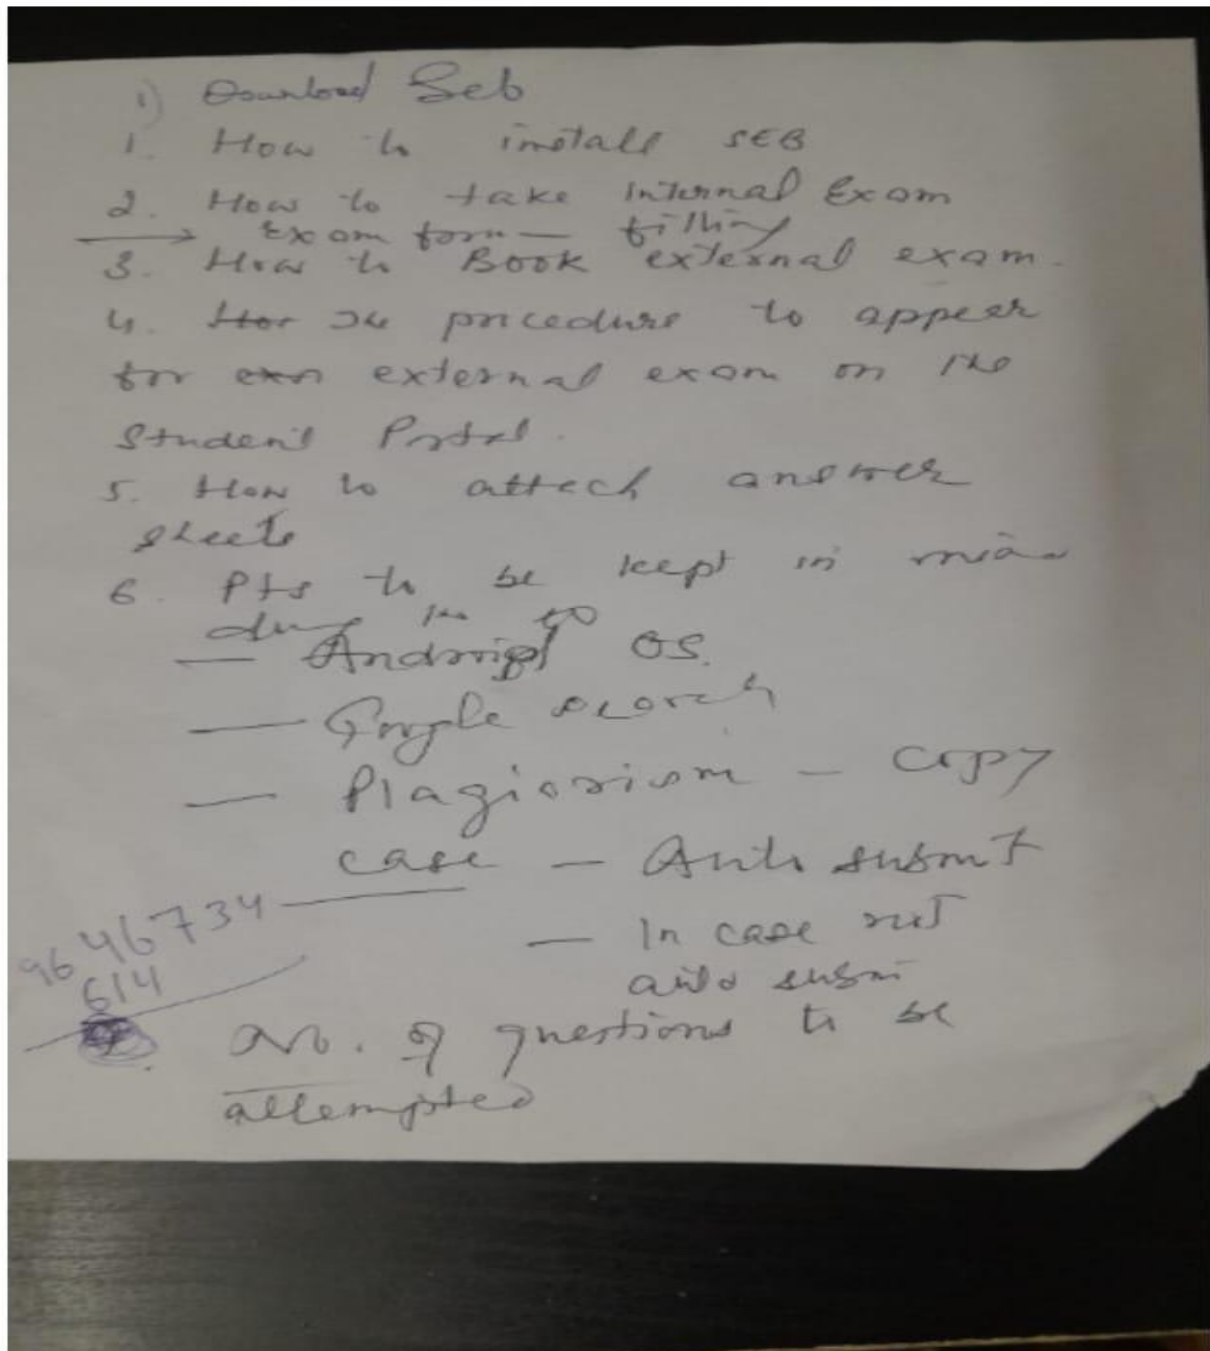 1) Download Seb
1. How to install SEB
2. How to take Internal Exam
Exam form — filling
3. How to Book external exam.
4. procedure to appear
for external exam on the
Student Portal.
5. How to attach answer
sheets
6. Pts to be kept in
— Android OS.
— Google search
— Plagiarism — copy
case — Auto submit
— In case not
auto subm
9646734
614
no. of questions to be
attempted